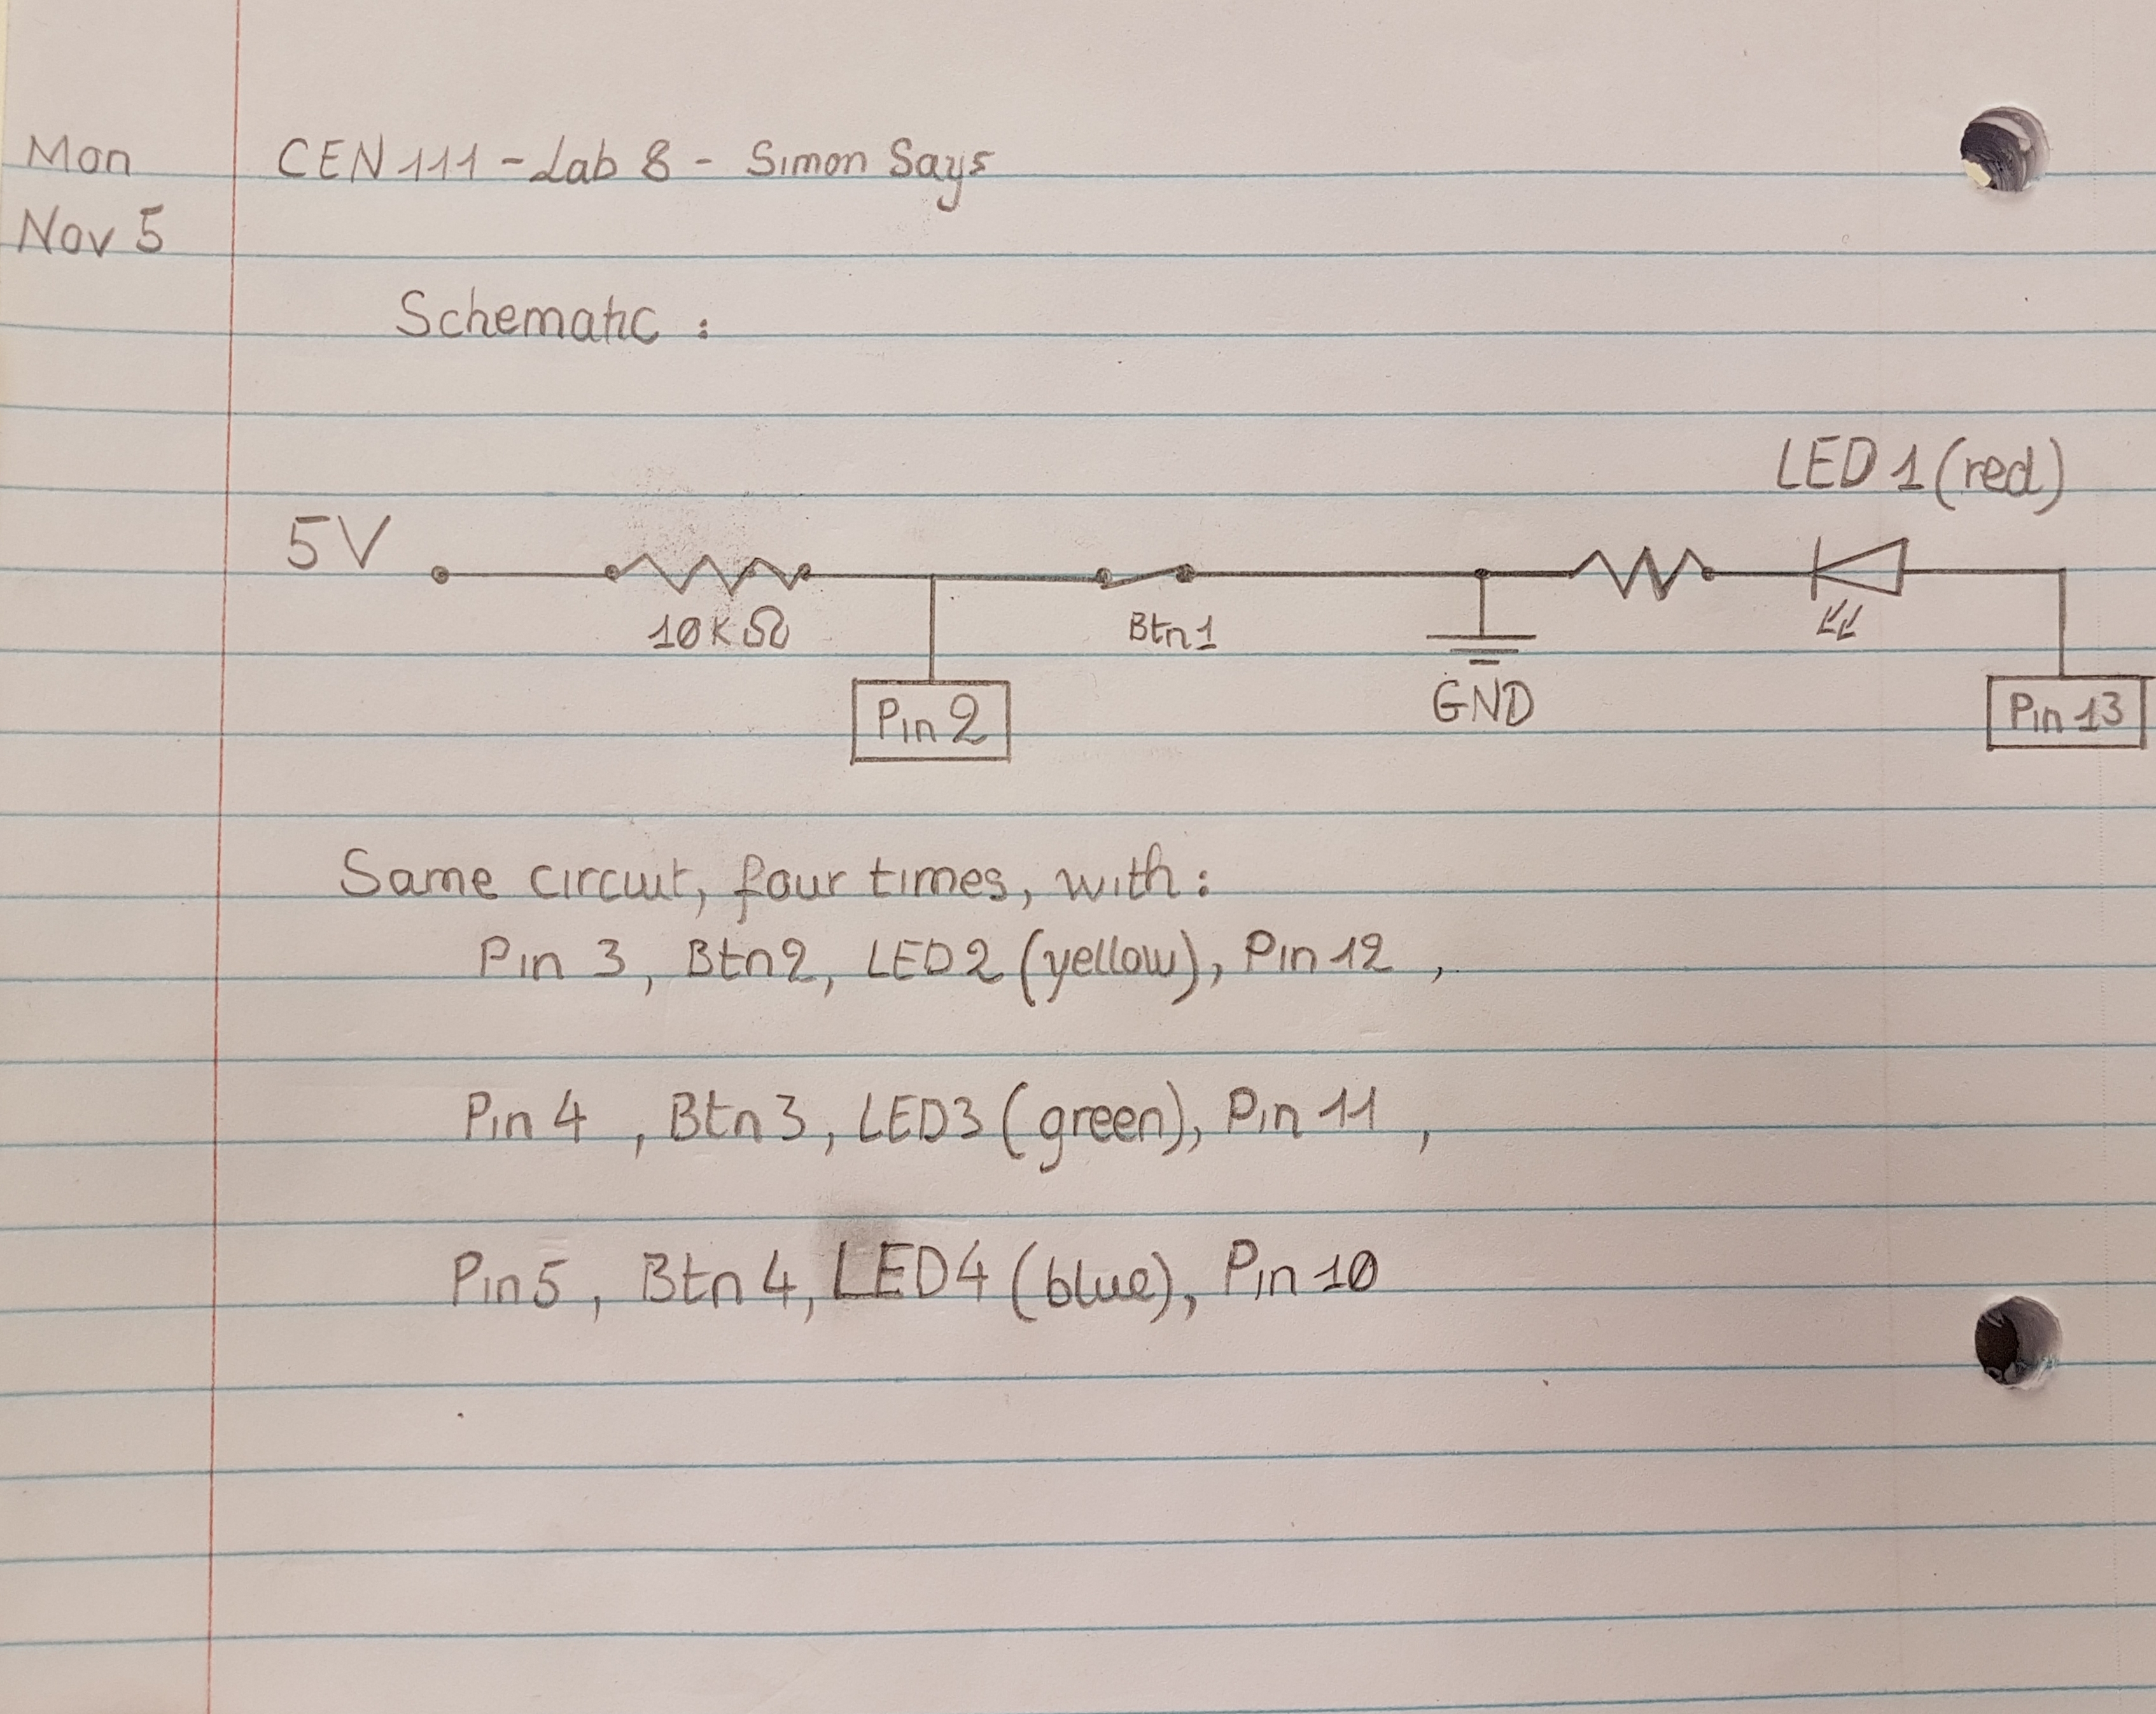 Mon
CEN 111 - Lab 8 - Simon Says
Nov 5
Schematic :
LED 1 (red)
5V
10KΩ
Btn1
Pin 2
GND
Pin 13
Same circuit, four times, with:
Pin 3, Btn2, LED2 (yellow), Pin 12 ,
Pin 4 , Btn3, LED3 (green), Pin 11 ,
Pin5 , Btn4, LED4 (blue), Pin 10